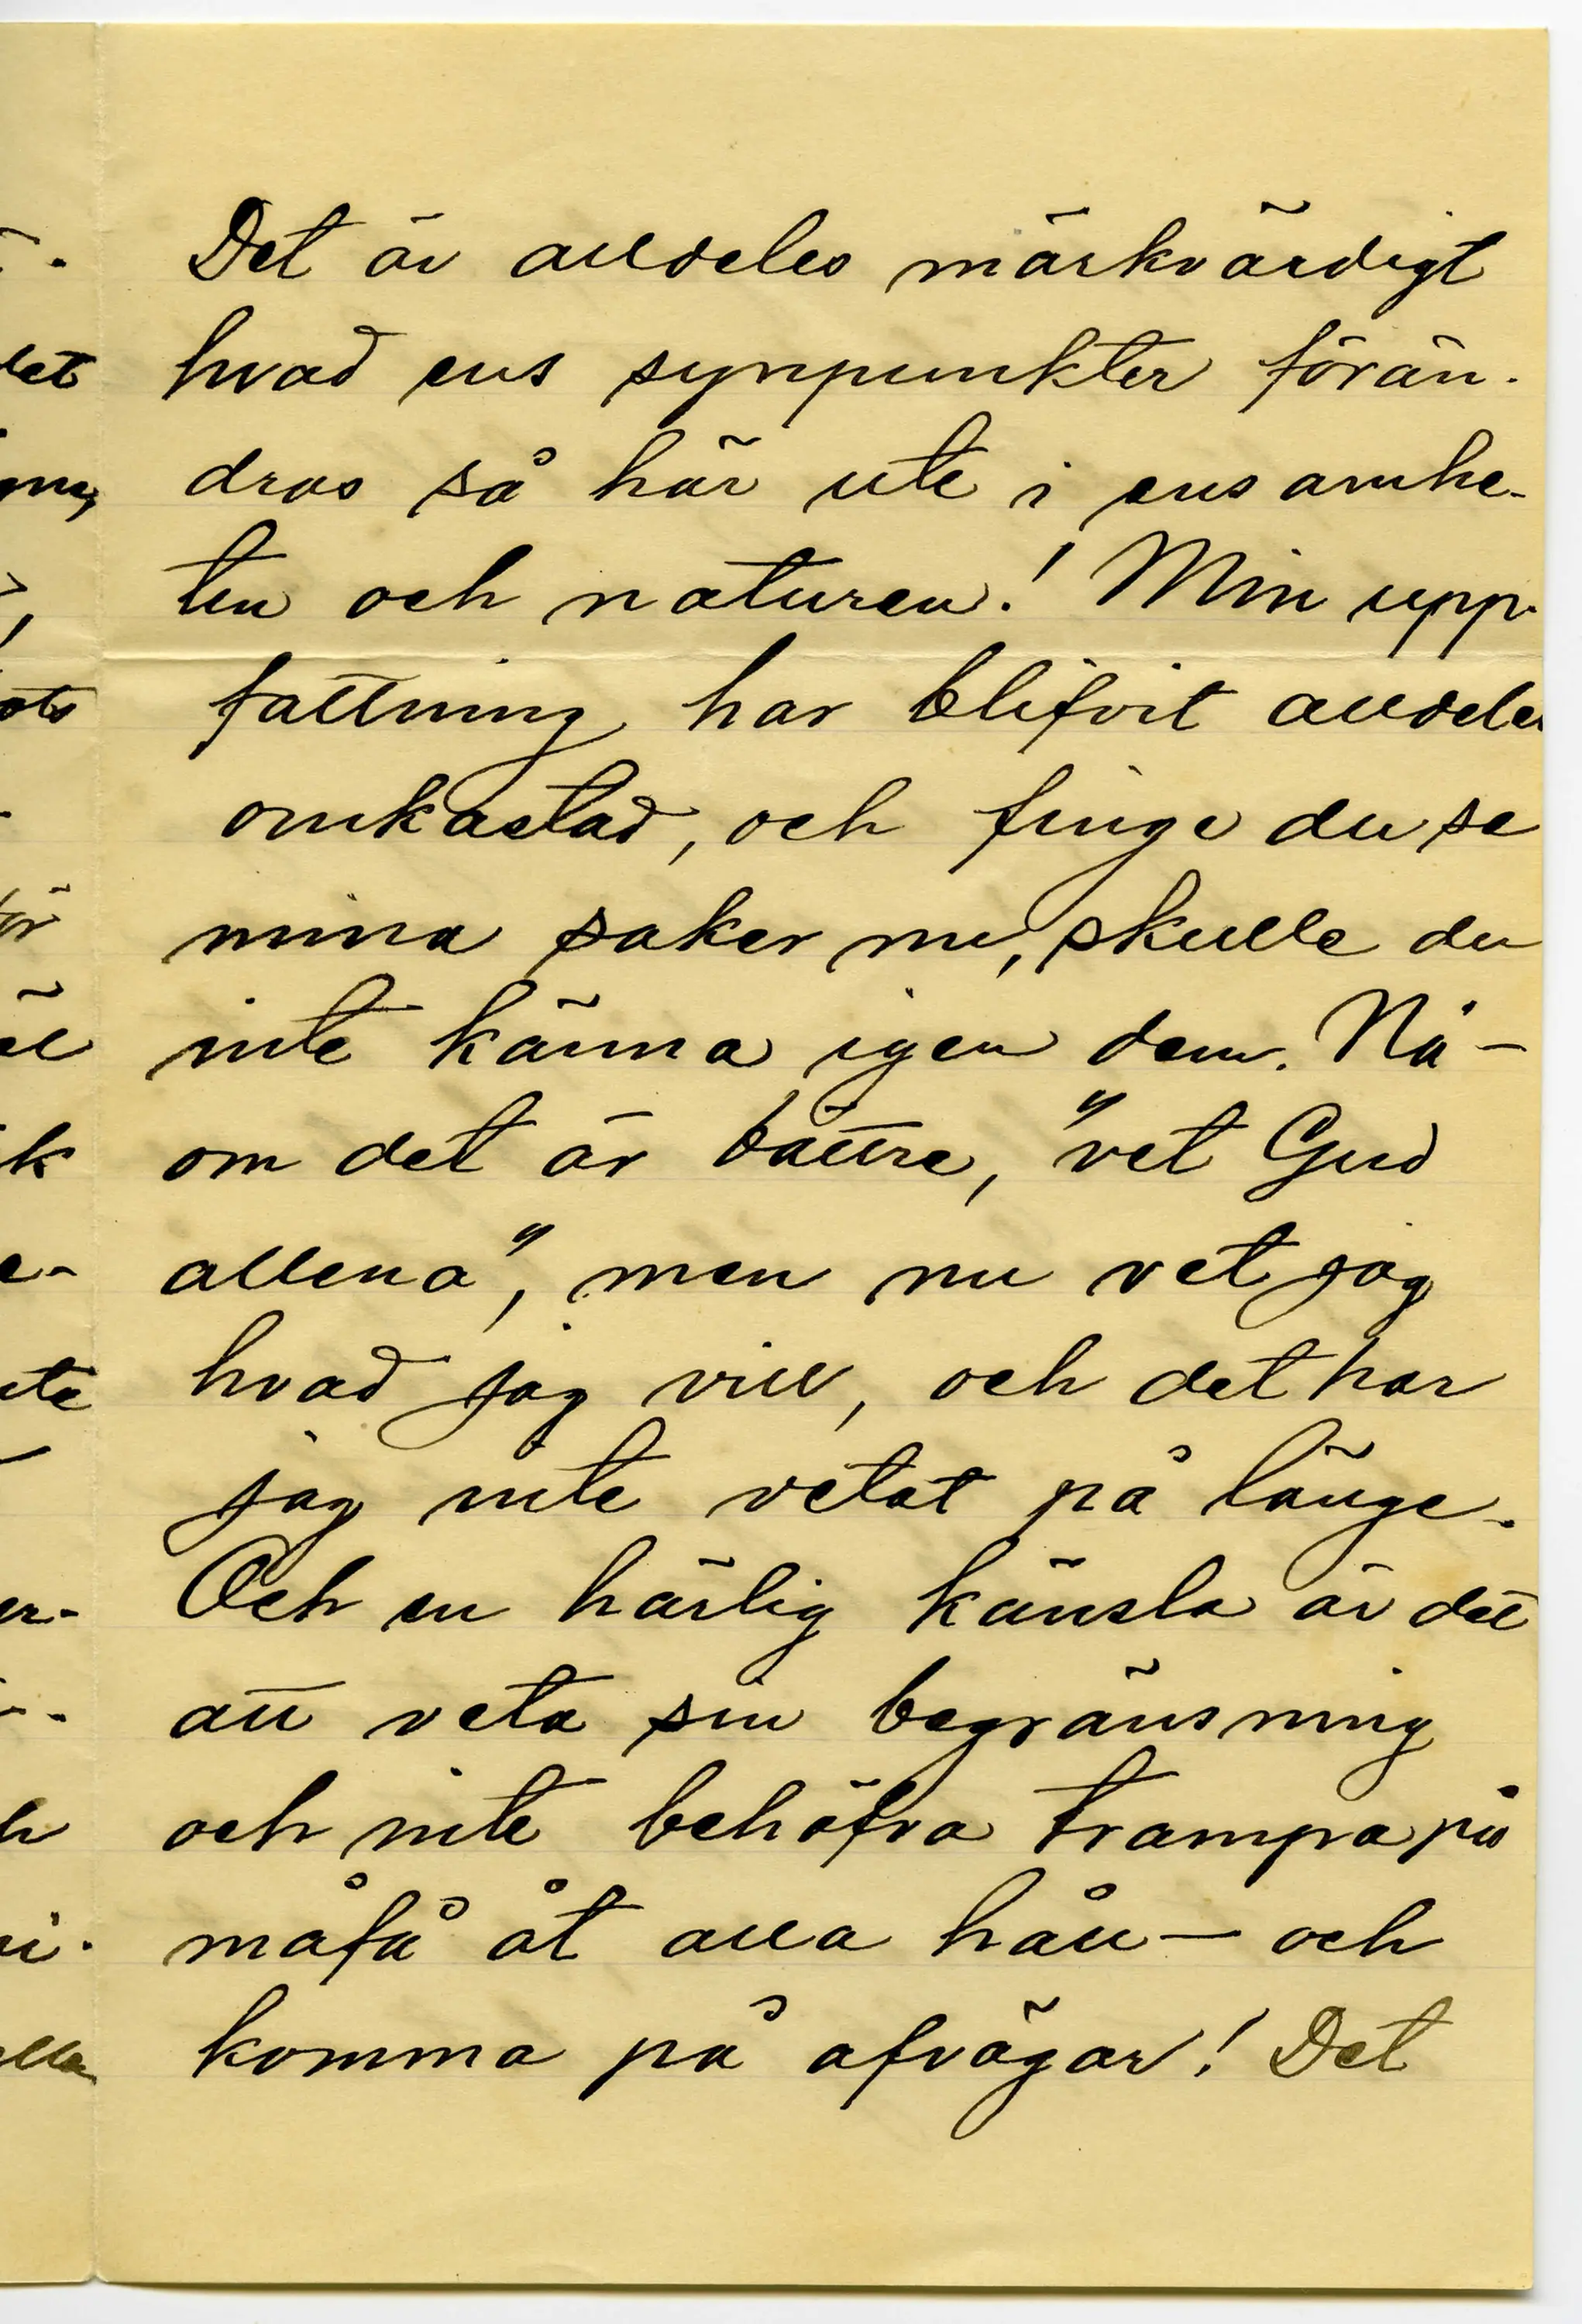 Det är alldeles märkvärdigt
hvad ens synpunkter förän-
dras så här ute i ensamhe-
ten och naturen! Min upp-
fattning har blifvit alldeles
omkastad, och finge du se
mina saker nu, skulle du
inte känna igen dem. Nå –
om det är bättre, "vet Gud
allena", men nu vet jag
hvad jag vill, och det har
jag inte vetat på länge.
Och en härlig känsla är det
att veta sin begränsning
och inte behöfva trampa på
måfå åt alla håll – och
komma på afvägar! Det